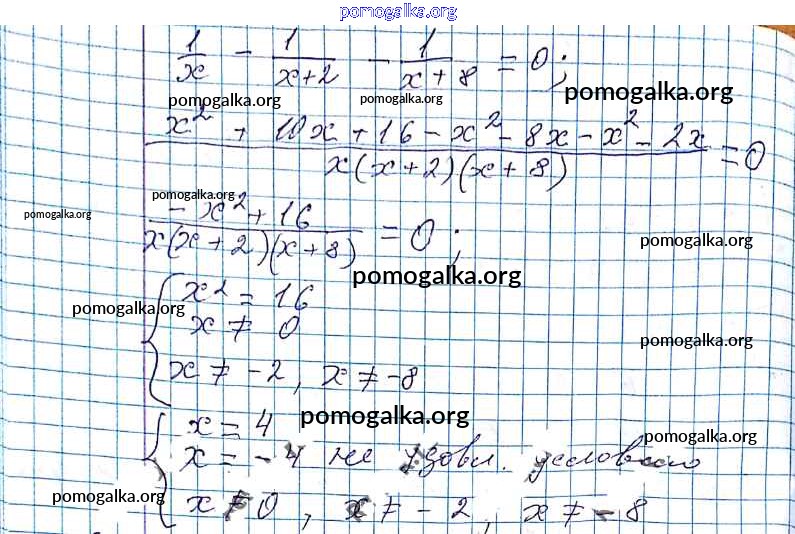 pomogalka.org
1/x - 1/(x+2) - 1/(x+8) = 0;
pomogalka.org pomogalka.org pomogalka.org
(x² + 10x + 16 - x² - 8x - x² - 2x)/(x(x+2)(x+8)) = 0
pomogalka.org
pomogalka.org
(-x² + 16)/(x(x+2)(x+8)) = 0;
pomogalka.org
pomogalka.org
x² = 16
pomogalka.org
x ≠ 0
pomogalka.org
x ≠ -2, x ≠ -8
pomogalka.org
x = 4
pomogalka.org
x = -4 не удовл. условию
pomogalka.org
x ≠ 0, x ≠ -2, x ≠ -8